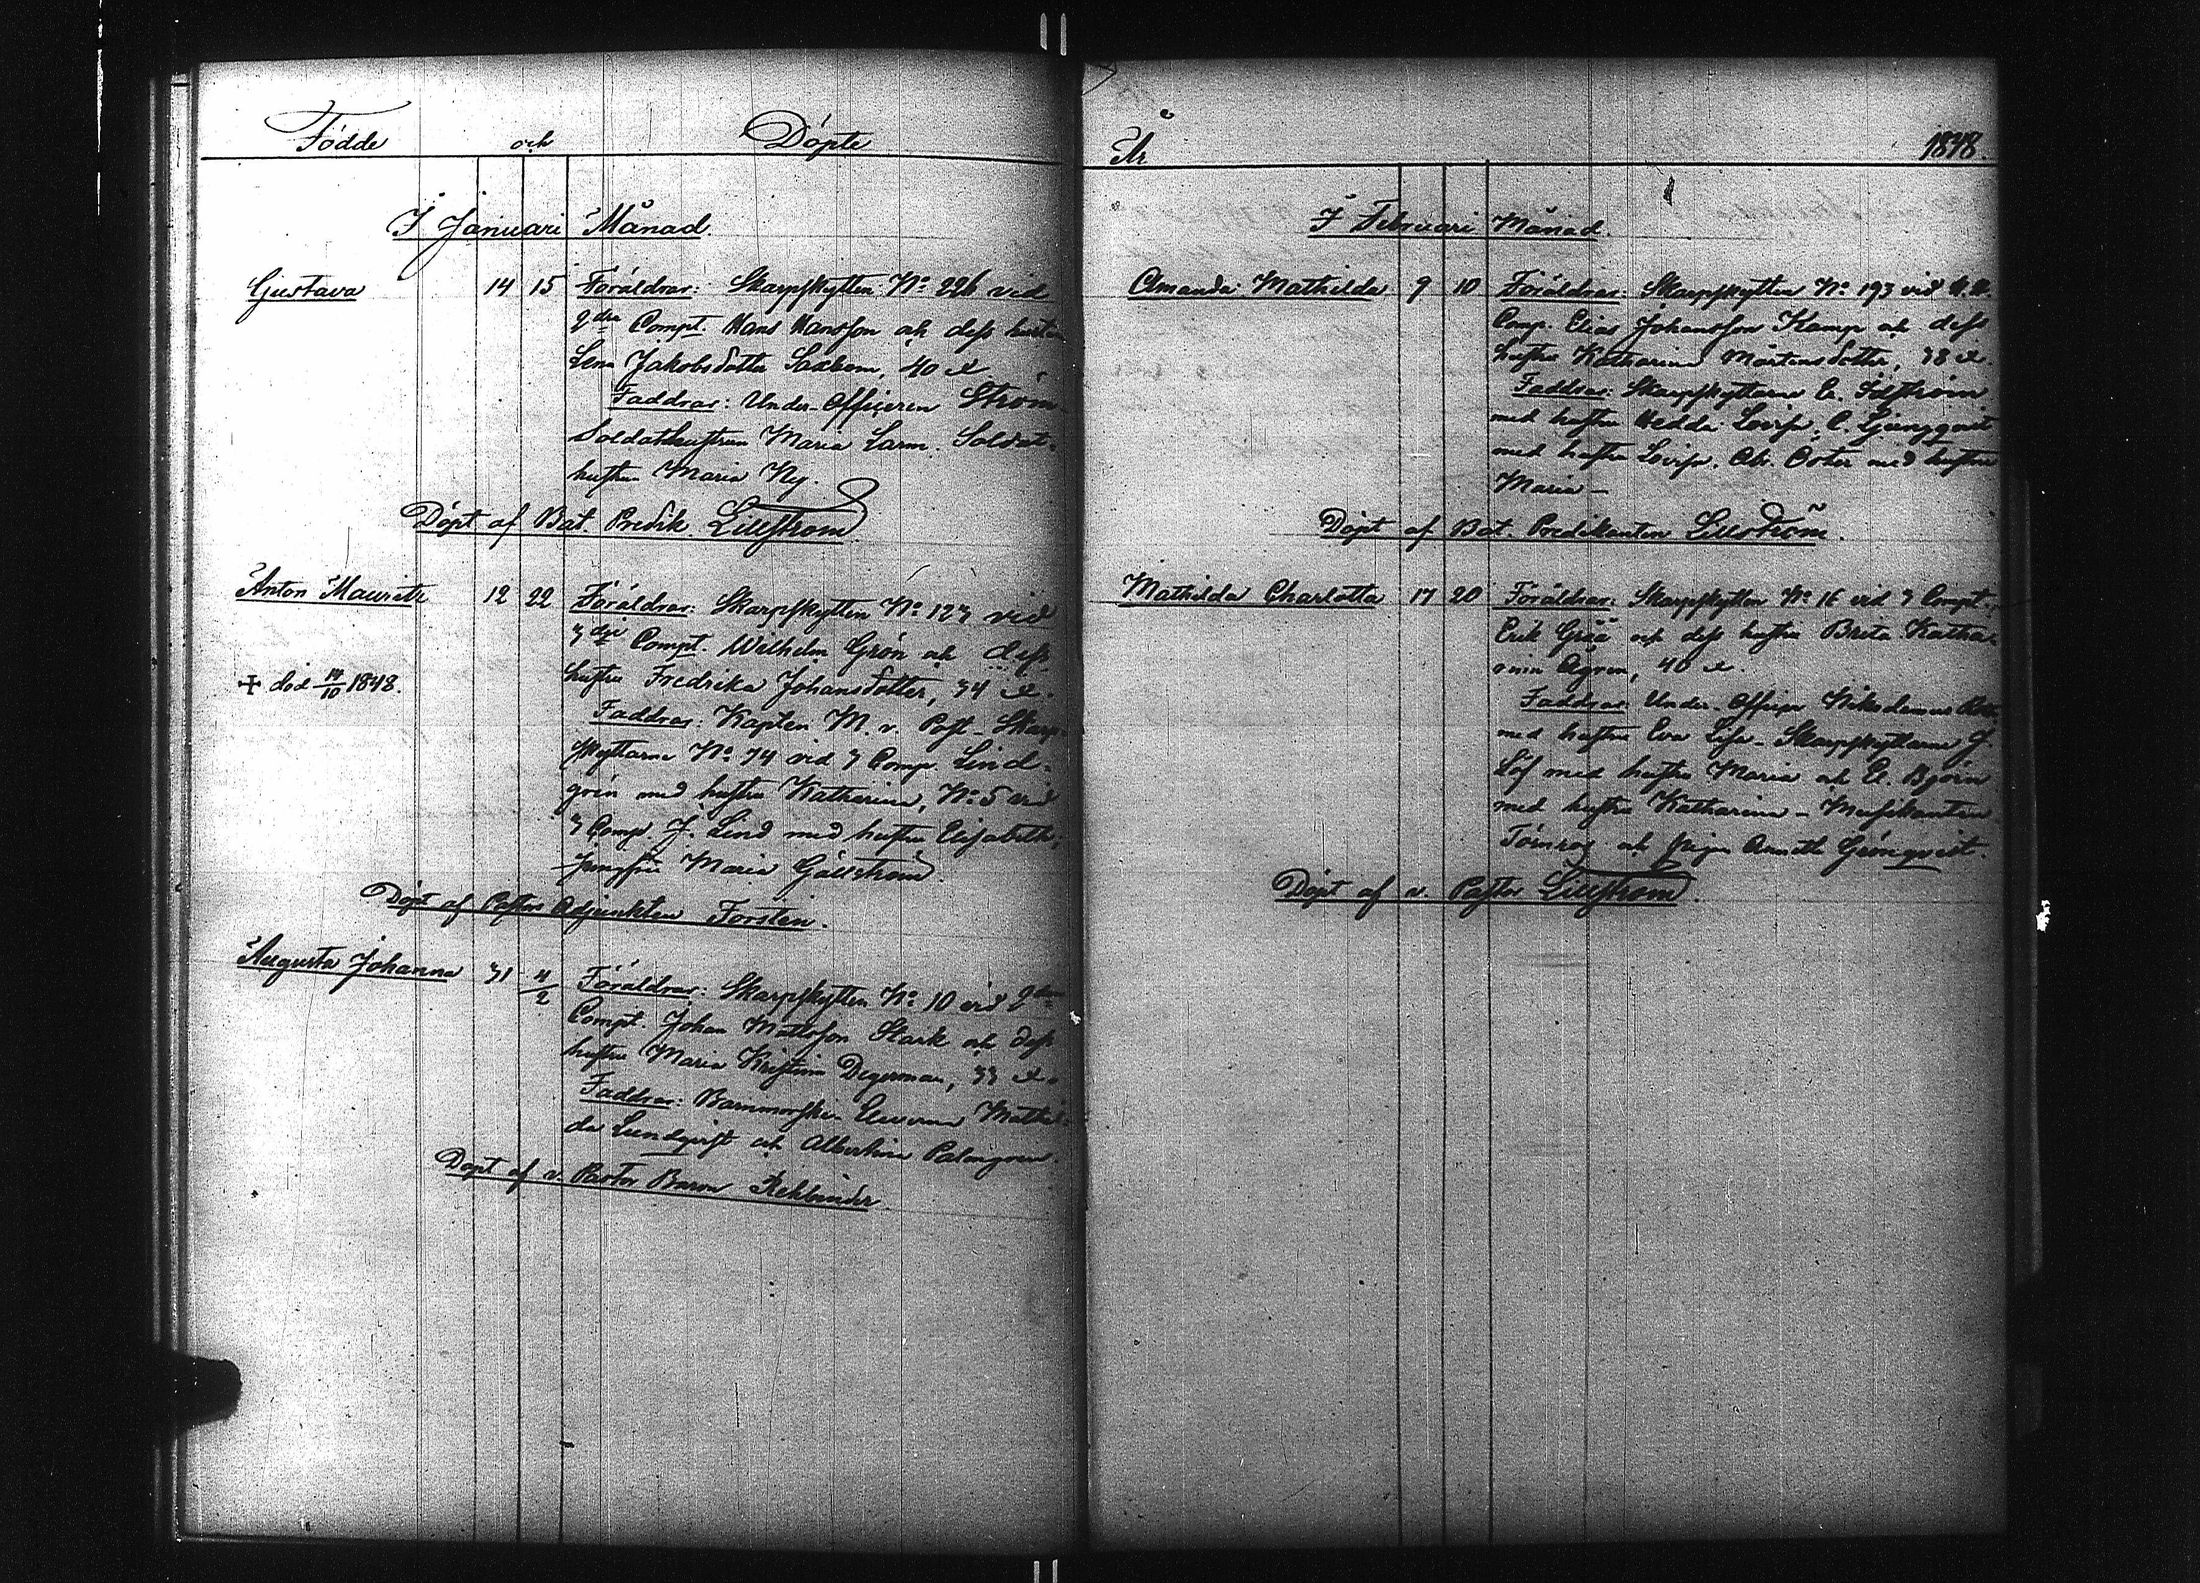 Födde och Döpte
I Januari Månad.
Gustava 14 15 Föräldrar: Skarpskytten No 226 vid
2dra Compt. Hans Hansson och dess hustru
Lena Jakobsdotter Saxbom, 40 år
Faddrar: Under-Officeren Ström
Soldathustrun Maria Larm. Soldat-
hustrun Maria Ny.
Döpt af Bat. Predik. Lillström.
Anton Mauritz 12 22 Föräldrar: Skarpskytten No 123 vid
3dje Compt. Wilhelm Grön och dess
+ död 14/10 1848.
hustru Fredrika Johansdotter, 34 år.
Faddrar: Kapten M. v. Post - Skarp-
skyttarne No 74 vid 3 Comp. Lind-
grén med hustru Katharina, No 5 vid
3 Comp. J. Lind med hustru Elisabeth;
Jungfru Maria Gällström.
Döpt af Pastors Adjunkten Forstén.
Augusta Johanna 31 4/2 Föräldrar: Skarpskytten No 10 vid 2dra
Compt. Johan Mattsson Stark och dess
hustru Maria Kristina Degerman, 33 år.
Faddrar: Barnmorske Mathil-
da Lundqvist och Albertina Palmgren.
Döpt af v. Pastor Baron Rehbinder.
År 1848.
I Februari Månad.
Amanda Mathilda 9 10 Föräldrar: Skarpskytten No 193 vid
Comp. Elias Johansson Kamp och dess
hustru Katharina Mårtensdotter, 38 år.
Faddrar: Skarpskyttarne E.
med hustru Hedda Lovisa, C. Ljungqvist
med hustru Lovisa. Ab. Öster med hustru
Maria -
Döpt af Bat. Predikanten Lillström.
Mathilda Charlotta 17 20 Föräldrar: Skarpskytten No 16 vid 3 Compt.
Erik Grää och dess hustru Brita Katha-
rina Ågren, 40 år.
Faddrar: Under-Officer Nikodemus
med hustru Eva Lisa - Skarpskyttarne J.
Löf med hustru Maria och E. Björn
med hustru Katharina - Musikanten
Törnros och Annette Grönqvist.
Döpt af v. Pastor Lillström.